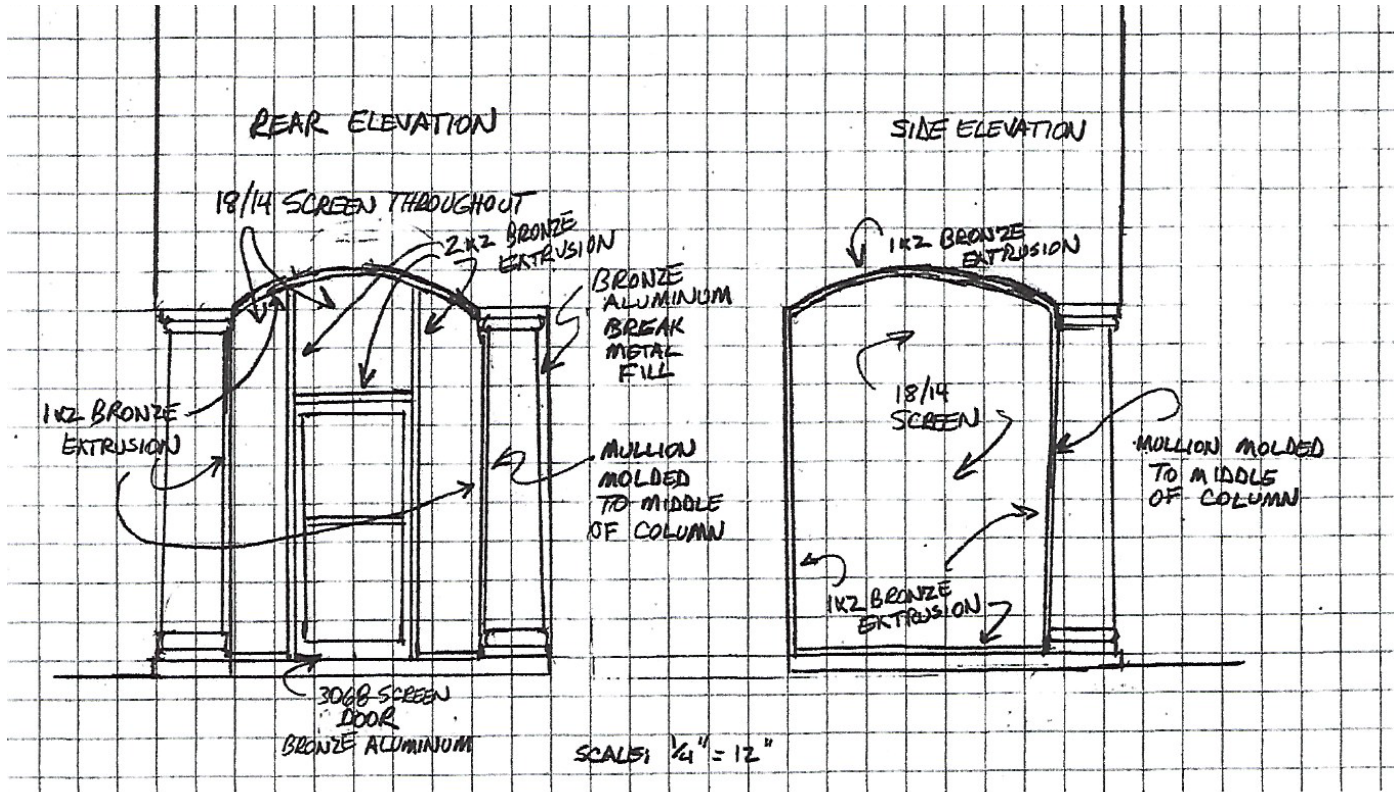 REAR ELEVATION
SIDE ELEVATION
18/14 SCREEN THROUGHOUT
2x2 BRONZE
EXTRUSION
BRONZE
ALUMINUM
BREAK
METAL
FILL
1x2 BRONZE
EXTRUSION
MULLION
MOLDED
TO MIDDLE
OF COLUMN
3068 SCREEN
DOOR
BRONZE ALUMINUM
1x2 BRONZE
EXTRUSION
18/14
SCREEN
MULLION MOLDED
TO MIDDLE
OF COLUMN
1x2 BRONZE
EXTRUSION
SCALE: 1/4" = 12"